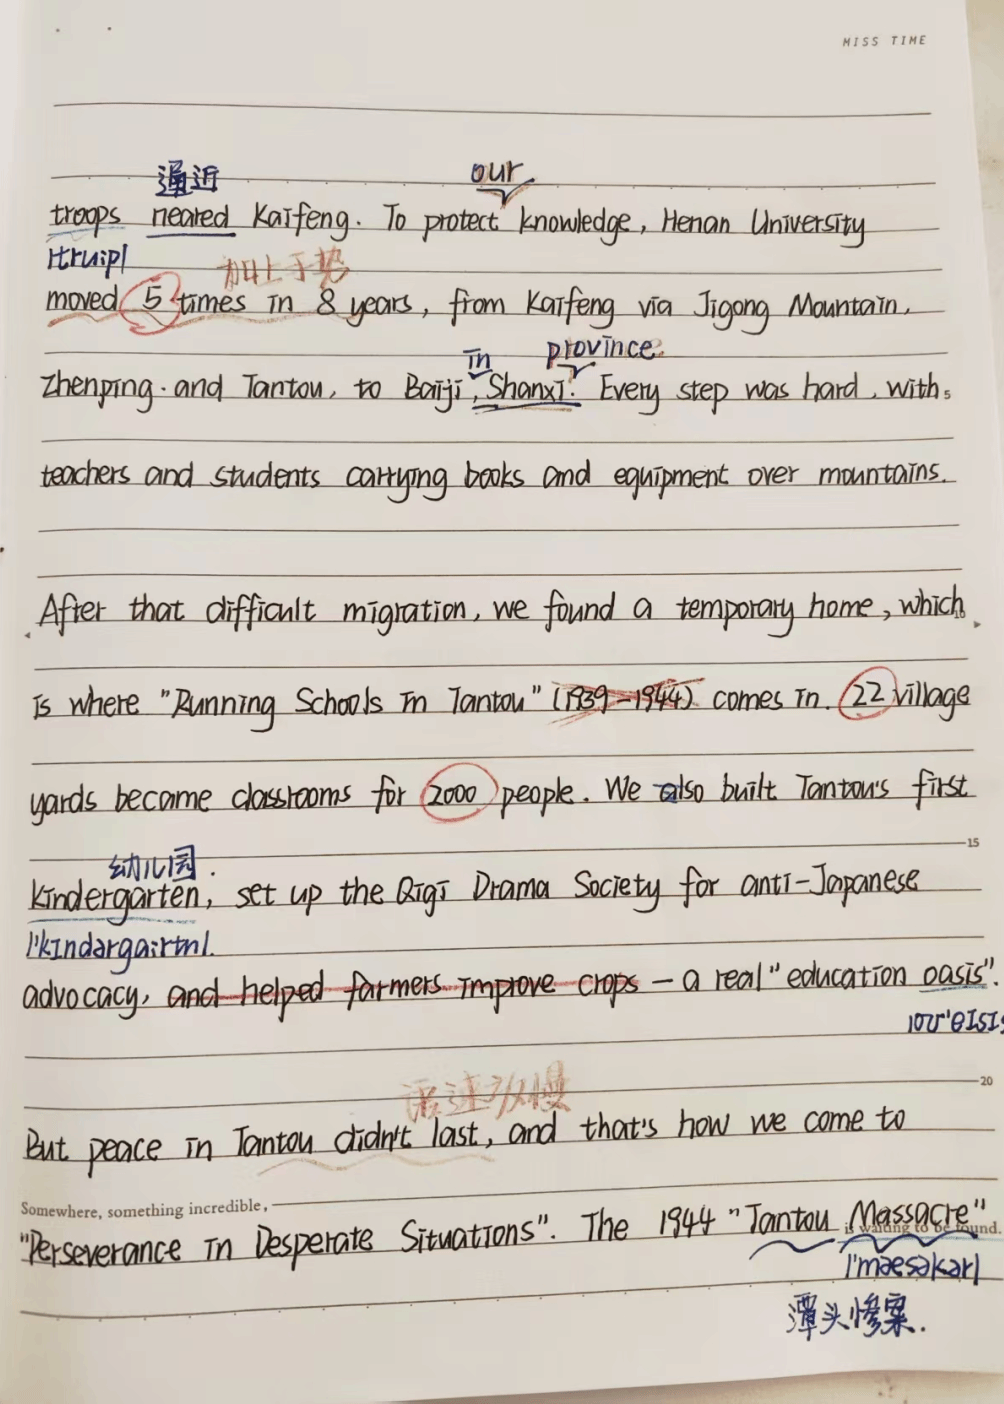 MISS TIME
逼近 our
troops neared Kaifeng. To protect knowledge, Henan University
/truːp/ 加上手势
moved 5 times in 8 years, from Kaifeng via Jigong Mountain,
in province
Zhenping and Tantou, to Baiji, Shanxi. Every step was hard, with
5
teachers and students carrying books and equipment over mountains.
After that difficult migration, we found a temporary home, which
10
is where "Running Schools in Tantou" (1939-1944) comes in. 22 village
yards became classrooms for 2000 people. We also built Tantou's first
15
幼儿园.
kindergarten, set up the Qiqi Drama Society for anti-Japanese
advocacy, and helped farmers improve crops — a real "education oasis".
20
语速放慢
But peace in Tantou didn't last, and that's how we come to
Somewhere, something incredible,
"Perseverance in Desperate Situations". The 1944 "Tantou Massacre"
is waiting to be found.
潭头惨案.